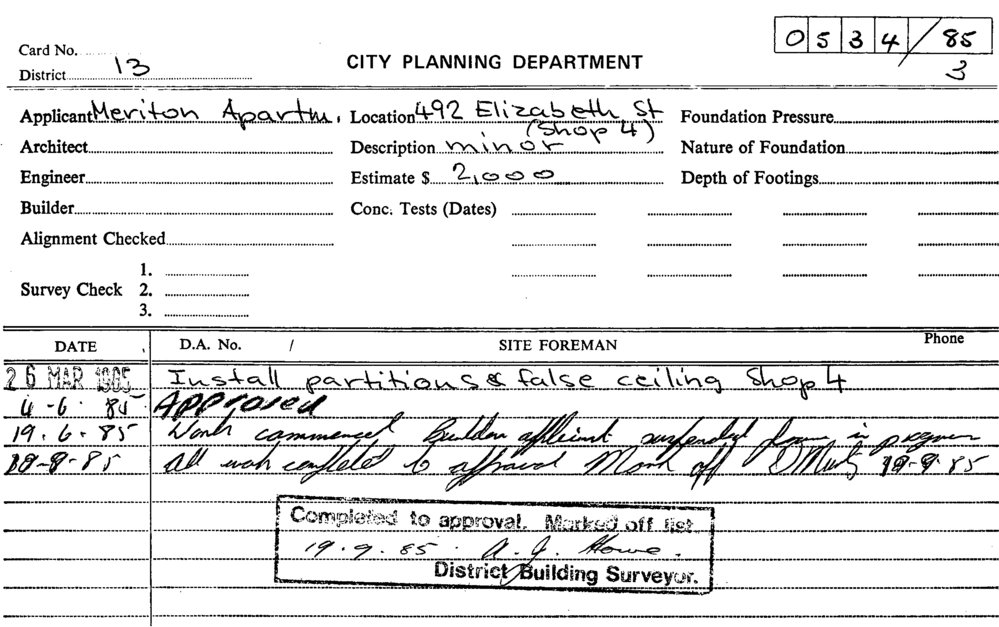 Card No.
0534/85
District 13
CITY PLANNING DEPARTMENT
3
Applicant Meriton Apartm. Location 492 Elizabeth St Foundation Pressure
(Shop 4)
Architect Description minor Nature of Foundation
Engineer Estimate $ 2,000 Depth of Footings
Builder Conc. Tests (Dates)
Alignment Checked
1.
Survey Check 2.
3.
DATE D.A. No. / SITE FOREMAN Phone
26 MAR 1985 Install partitions & false ceiling Shop 4
4-6-85 APPROVED
19.6.85 Work commenced Builder applicant suspended in progress
19-9-85 All work completed to approval Mark off 19-9-85
Completed to approval. Marked off list
19.9.85. A. J. Howe.
District Building Surveyor.